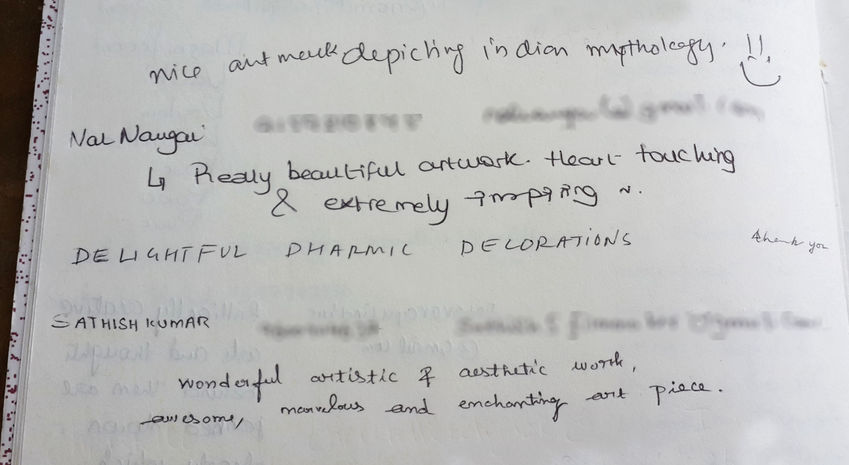 nice art work depicting indian mythology. !!
Nal Nangai
↳ Really beautiful artwork. Heart touching
& extremely inspiring ~.
DELIGHTFUL DHARMIC DECORATIONS
thank you
SATHISH KUMAR
wonderful artistic & aesthetic work,
awesome, marvelous and enchanting art piece.